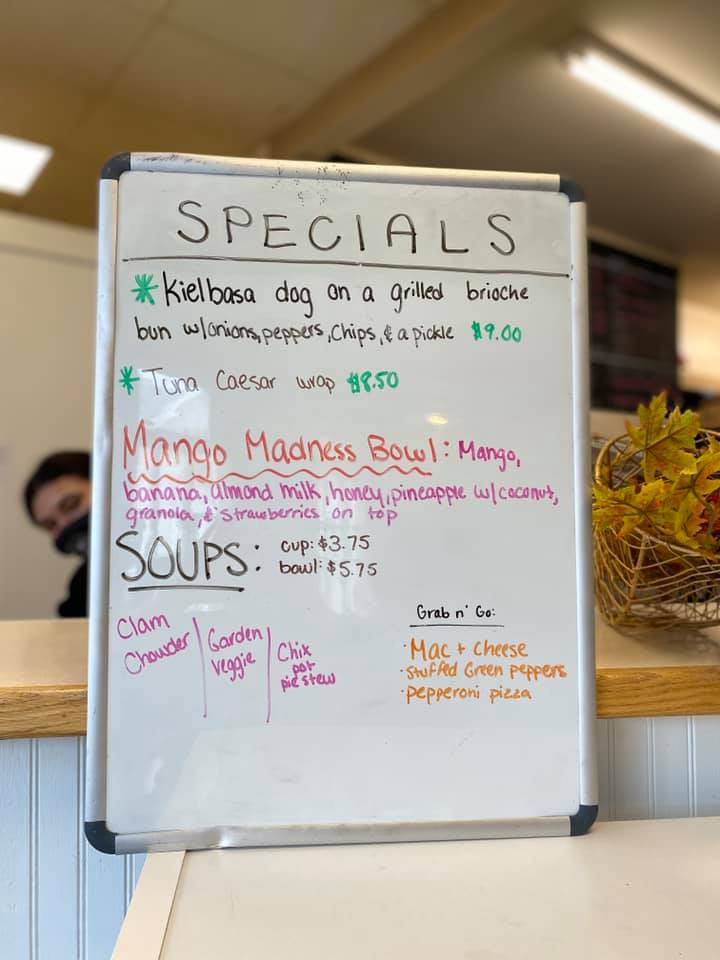 SPECIALS
* Kielbasa dog on a grilled brioche
bun w/onions, peppers, chips, & a pickle $9.00
* Tuna Caesar wrap $8.50
Mango Madness Bowl: Mango,
banana, almond milk, honey, pineapple w/coconut,
granola, & strawberries on top
SOUPS: cup: $3.75
bowl: $5.75
Clam
Chowder
Garden
Veggie
Chix
pot
pie stew
Grab n' Go:
· Mac + Cheese
· Stuffed Green peppers
· pepperoni pizza